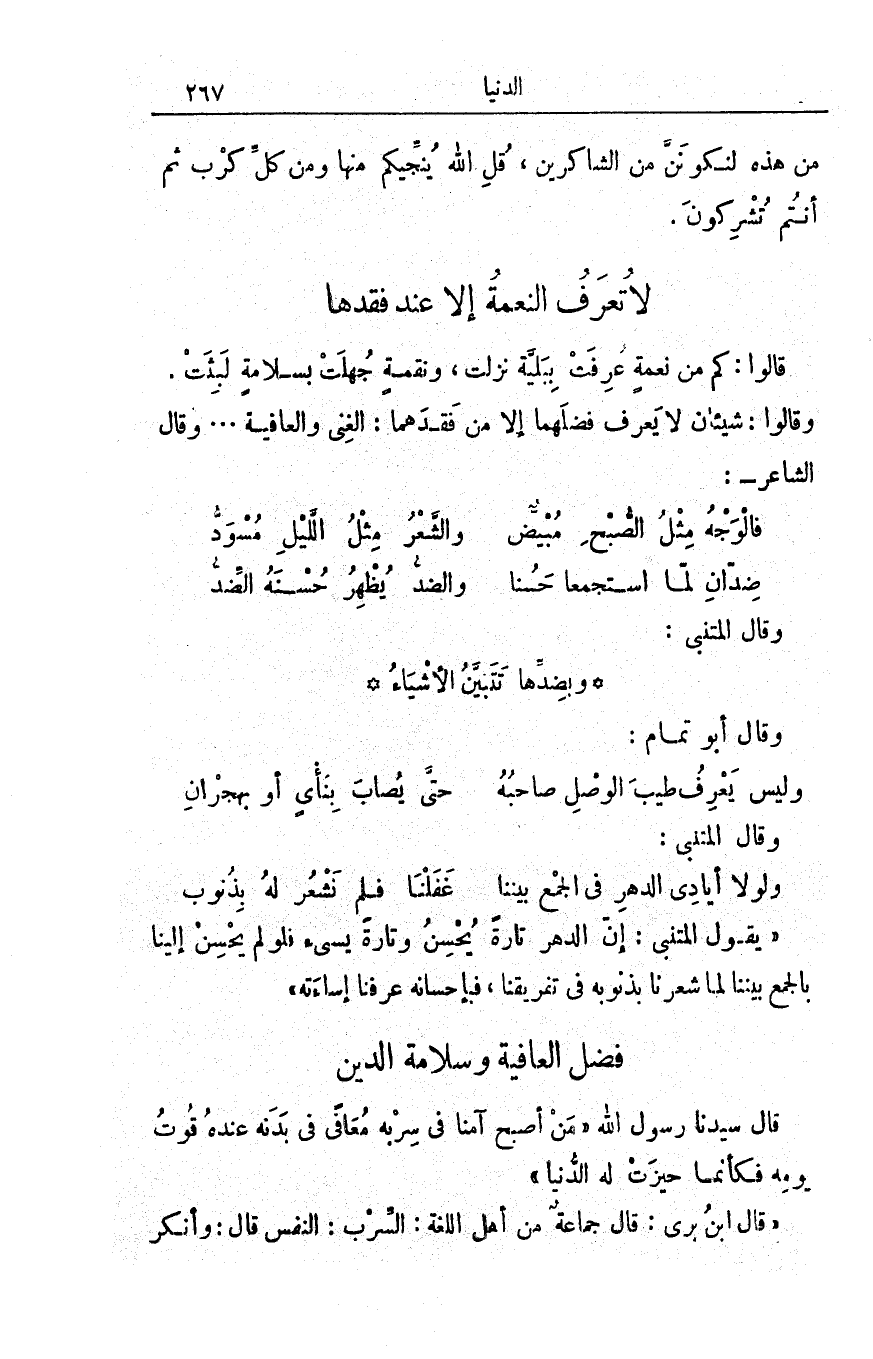 الدنيا ٢٦٧
من هذه لنكونَنَّ من الشاكرين ، قُلِ الله يُنجِّيكم منها ومن كلِّ كرْب ثم
أنتُم تُشْرِكونَ .
لا تُعرَفُ النعمةُ إلا عند فقدها
قالوا : كم من نعمةٍ عُرِفَتْ بِبَليَّة نزلت ، ونقمةٍ جُهلَتْ بسلامةٍ لَبِثَتْ .
وقالوا : شيئان لا يَعرف فضلَهما إلا من فَقدَهما : الغِنى والعافية ... وقال
الشاعر ــ :
فالْوَجْهُ مِثْلُ الصُّبْحِ مُبْيضٌّ والشَّعْرُ مِثْلُ الَّليْلِ مُسْوَدُّ
ضِدّانِ لمّا استجمعا حَسُنا والضدُّ يُظْهِرُ حُسْنَهُ الضِّدُّ
وقال المتنبي :
* وبضِدِّها تَتَبَيَّنُ الأشْيَاءُ *
وقال أبو تمام :
وليس يَعْرِفُ طيبَ الوصْلِ صاحبُهُ حتَّى يُصابَ بِنَأْيٍ أو بهجْرانِ
وقال المتنبي :
ولولا أيادِى الدهرِ فى الجمْع بيننا غَفَلْنَا فلم نَشْعُر لهُ بِذُنوب
« يقول المتنبى : إنّ الدهر تارةً يُحْسِنُ وتارةً يسىء فلو لم يحْسِنْ إلينا
بالجمع بيننا لما شعرنا بذنوبه فى تفريقنا ، فبإحسانه عرفنا إساءَته»
فضل العافية وسلامة الدين
قال سيدنا رسول الله «مَنْ أصبح آمنا فى سِرْبه مُعَافًى فى بَدَنه عندهُ قُوتُ
يومِه فكأنما حيزَتْ له الدُّنيا »
« قال ابنُ برى : قال جماعةٌ من أهل اللغة : السِّرْب : النفس قال : وأنكر